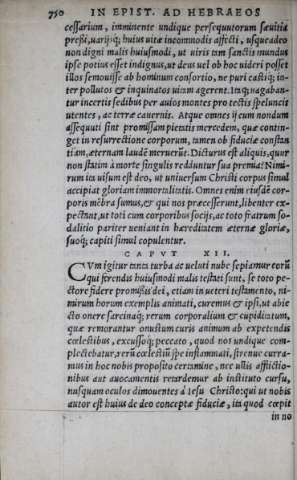 750 IN EPIST. AD HEBRAEOS
cessarium, imminente undique persequutorum sæuitia
pressi, uarijsq; huius uitæ incommodis afflicti, usque adeo
non digni malis huiusmodi, ut uiris tam sanctis mundus
ipse potius esset indignus, ut deus uel ob hoc uideri posset
illos semouisse ab hominum consortio, ne puri castiq; in-
ter pollutos & inquinatos uitam agerent. Itaq; uagaban-
tur incertis sedibus per auios montes pro tectis speluncis
utentes, ac terræ cauernis. Atque omnes ij cum nondum
assequuti sint promissam pietatis mercedem, quæ contin-
get in resurrectione corporum, tamen ob fiduciæ constan
tiam, æternam laudem meruerunt. Dicturus est aliquis, quur
non statim à morte singulis redduntur sua præmia? Nimi-
rum ita uisum est deo, ut uniuersum Christi corpus simul
accipiat gloriam immortalitatis. Omnes enim eiusdē cor-
poris mēbra sumus, & qui nos præcesserunt, libenter ex-
pectant, ut toti cum corporibus socijs, ac toto fratrum so-
dalitio pariter ueniant in hæreditatem æternæ gloriæ,
suoq; capiti simul copulentur.
CAPVT XII.
CVm igitur tanta turba ac ueluti nube sepiamur eorū
qui ferendis huiusmodi malis testati sunt, se toto pe-
ctore fidere promissis dei, etiam in ueteri testamento, ni-
mirum horum exemplis animati, curemus & ipsi, ut abie
cto onere sarcinaq; rerum corporalium & cupiditatum,
quæ remorantur onustum curis animum ab expetendis
cœlestibus, excussoq; peccato, quod nos undique com-
plectebatur, rerū cœlestiū spe inflammati, strenue curra-
mus in hoc nobis proposito certamine, nec ullis afflictio-
nibus aut auocamentis retardemur ab instituto cursu,
nusquam oculos dimouentes à Iesu Christo: qui ut nobis
autor est huius de deo conceptæ fiduciæ, ita quod cœpit
in no